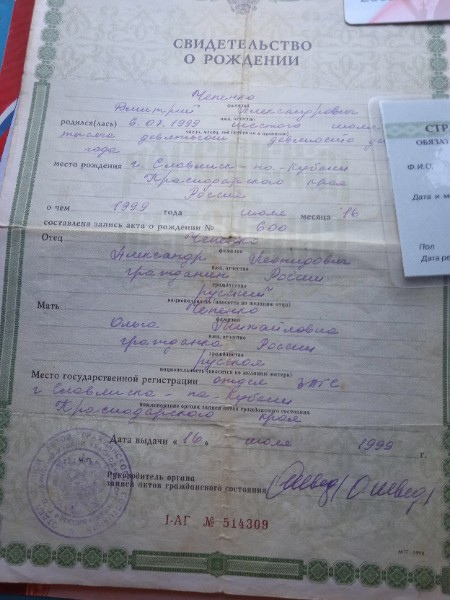 СВИДЕТЕЛЬСТВО
О РОЖДЕНИИ
Чепенко
фамилия
Дмитрий Александрович
имя, отчество
родился(лась) 6.07.1999 шестого июля
число, месяц, год (цифрами и прописью)
тысяча девятьсот девяносто
года
место рождения г. Славянск-на-Кубани
Краснодарского края
Россия
о чем 1999 года июля месяца 16
составлена запись акта о рождении № 600
Отец Чепенко
фамилия
Александр Леонидович
имя, отчество
гражданин России
гражданство
русский
национальность (вносится по желанию отца)
Мать Чепенко
фамилия
Ольга Михайловна
имя, отчество
гражданка России
гражданство
русская
национальность (вносится по желанию матери)
Место государственной регистрации отдел ЗАГС
наименование органа записи актов гражданского состояния
г. Славянска-на-Кубани
Краснодарского края
Дата выдачи «16» июля 1999 г.
М.П.
Руководитель органа
записи актов гражданского состояния
I-АГ № 514309
СТР
ОБЯЗАТ
Ф.И.О.
Дата и м
Пол
Дата ре